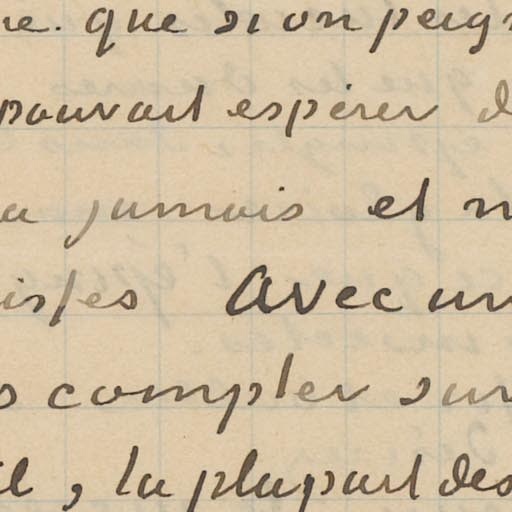 re. que si on peign
pouvait espérer d
a jamais et n
istes Avec un
s compter sur
il, la plupart des